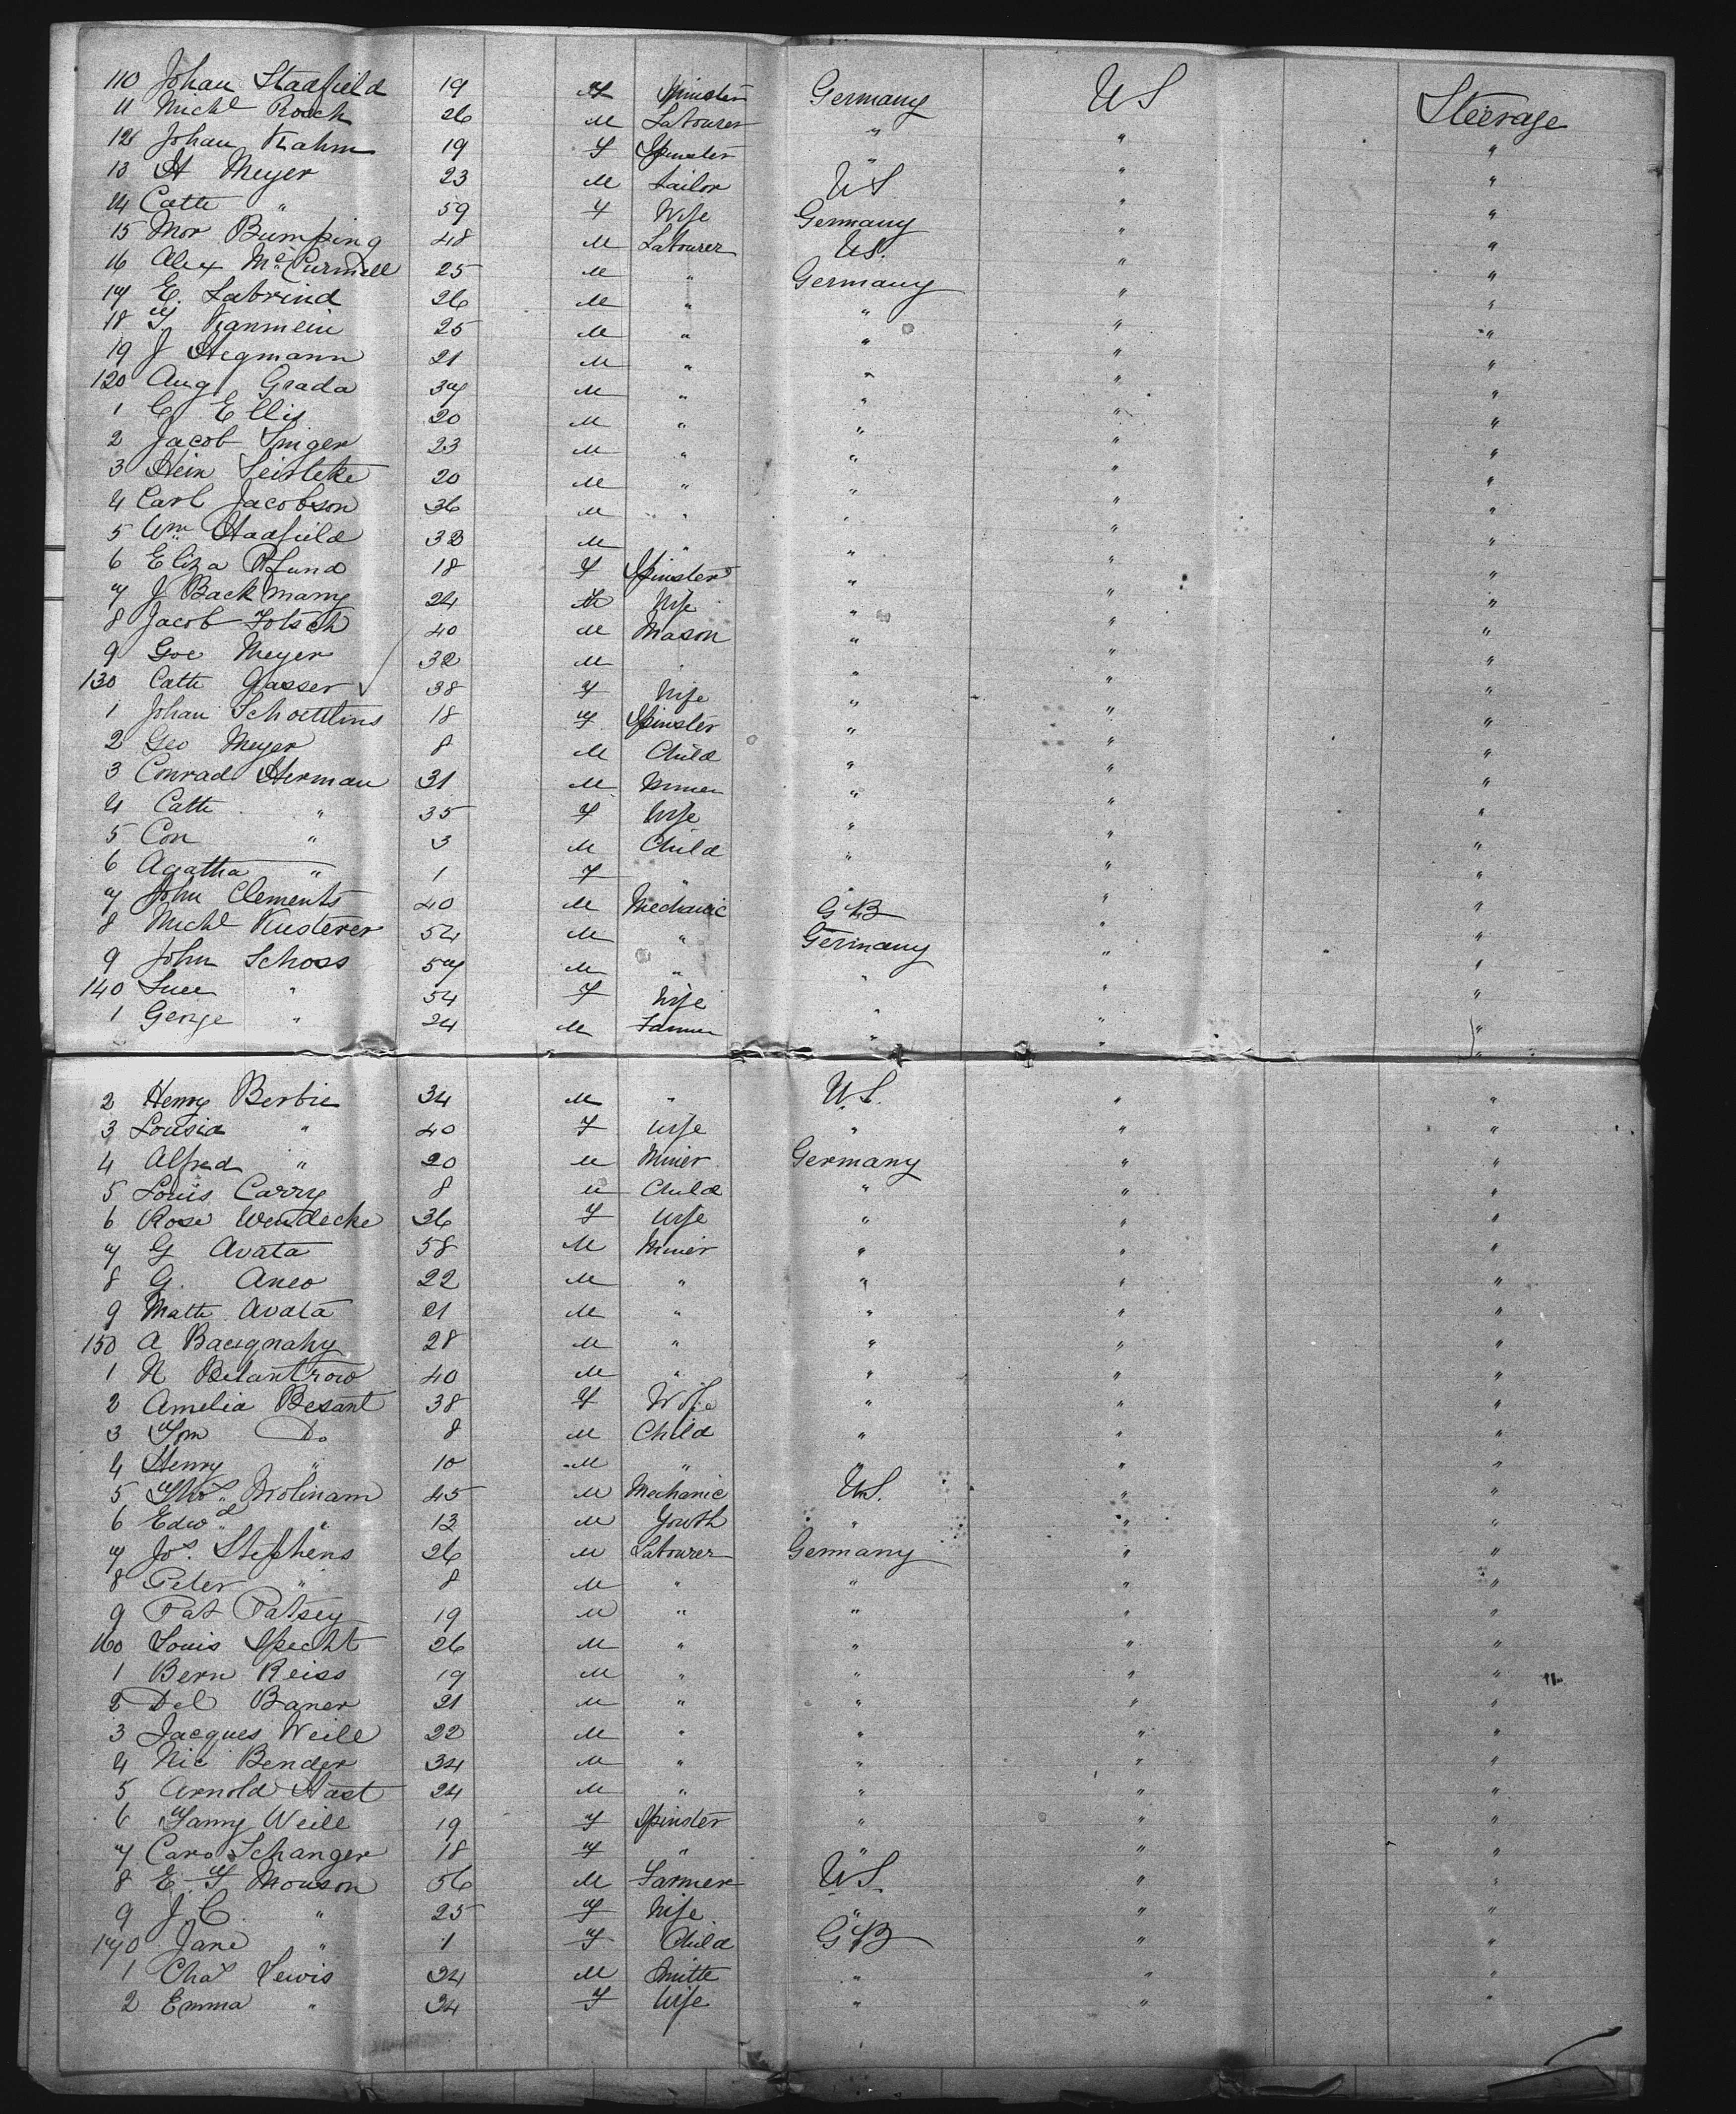 110 Johan Stadfield 19 F Spinster Germany US Steerage
11 Michl Rosch 26 M Labourer " " "
12 Johan Kahm 19 F Spinster " " "
13 H Meyer 23 M Tailor US " "
14 Cath " 59 F Wife Germany " "
15 Mor Bumping 48 M Labourer US. " "
16 Alex McCurmell 25 M " Germany " "
17 E. Labrind 26 M " " " "
18 F Kanmein 25 M " " " "
19 J Stegmann 21 M " " " "
120 Aug Grada 37 M " " " "
1 C Ellis 20 M " " " "
2 Jacob Singer 23 M " " " "
3 Hein Leisteke 20 M " " " "
4 Carl Jacobson 36 M " " " "
5 Wm Stadfield 32 M " " " "
6 Eliza Pfund 18 F Spinster " " "
7 J Backmann 24 Wife " " "
8 Jacob Fotsch 40 M Mason " " "
9 Geo Meyer 32 M " " " "
130 Cath Gasser 38 F Wife " " "
1 Johan Schoettlins 18 F Spinster " " "
2 Geo Meyer 8 M Child " " "
3 Conrad Herman 31 M Miner " " "
4 Cath " 35 F Wife " " "
5 Con " 3 M Child " " "
6 Agatha " 1 F " " " "
7 John Clements 40 M Mechanic GB " "
8 Michl Kusterer 54 M " Germany " "
9 John Schoss 57 M " " " "
140 Luce " 54 F Wife " " "
1 George " 24 M Farmer " " "
2 Henry Berbie 34 M " U.S. " "
3 Lousia " 40 F Wife " " "
4 Alfred " 20 M Miner Germany " "
5 Louis Carry 8 M Child " " "
6 Rose Wendecke 36 F Wife " " "
7 G Avata 58 M Miner " " "
8 G. Aneo 22 M " " " "
9 Math Avata 21 M " " " "
150 A Bacignahy 28 M " " " "
1 N Belantrow 40 M " " " "
2 Amelia Besant 38 F Wife " " "
3 Tom Do 8 M Child " " "
4 Henry " 10 M " " " "
5 Thos. Molinam 45 M Mechanic U.S. " "
6 Edwd " 13 M Youth " " "
7 Jos. Stephens 26 M Labourer Germany " "
8 Peter " 8 M " " " "
9 Pat Patsey 19 M " " " "
160 Louis Specht 26 M " " " "
1 Bern Reiss 19 M " " " "
2 Del Baner 21 M " " " "
3 Jacques Weill 22 M " " " "
4 Nic Bender 34 M " " " "
5 Arnold Hast 24 M " " " "
6 Fanny Weill 19 F Spinster " " "
7 Caro Schanger 18 F " " " "
8 E. F Monson 56 M Farmer U.S. " "
9 J. C. " 25 F Wife " " "
170 Jane " 1 F Child GB " "
1 Chas Lewis 34 M Smith " " "
2 Emma " 34 F Wife " " "